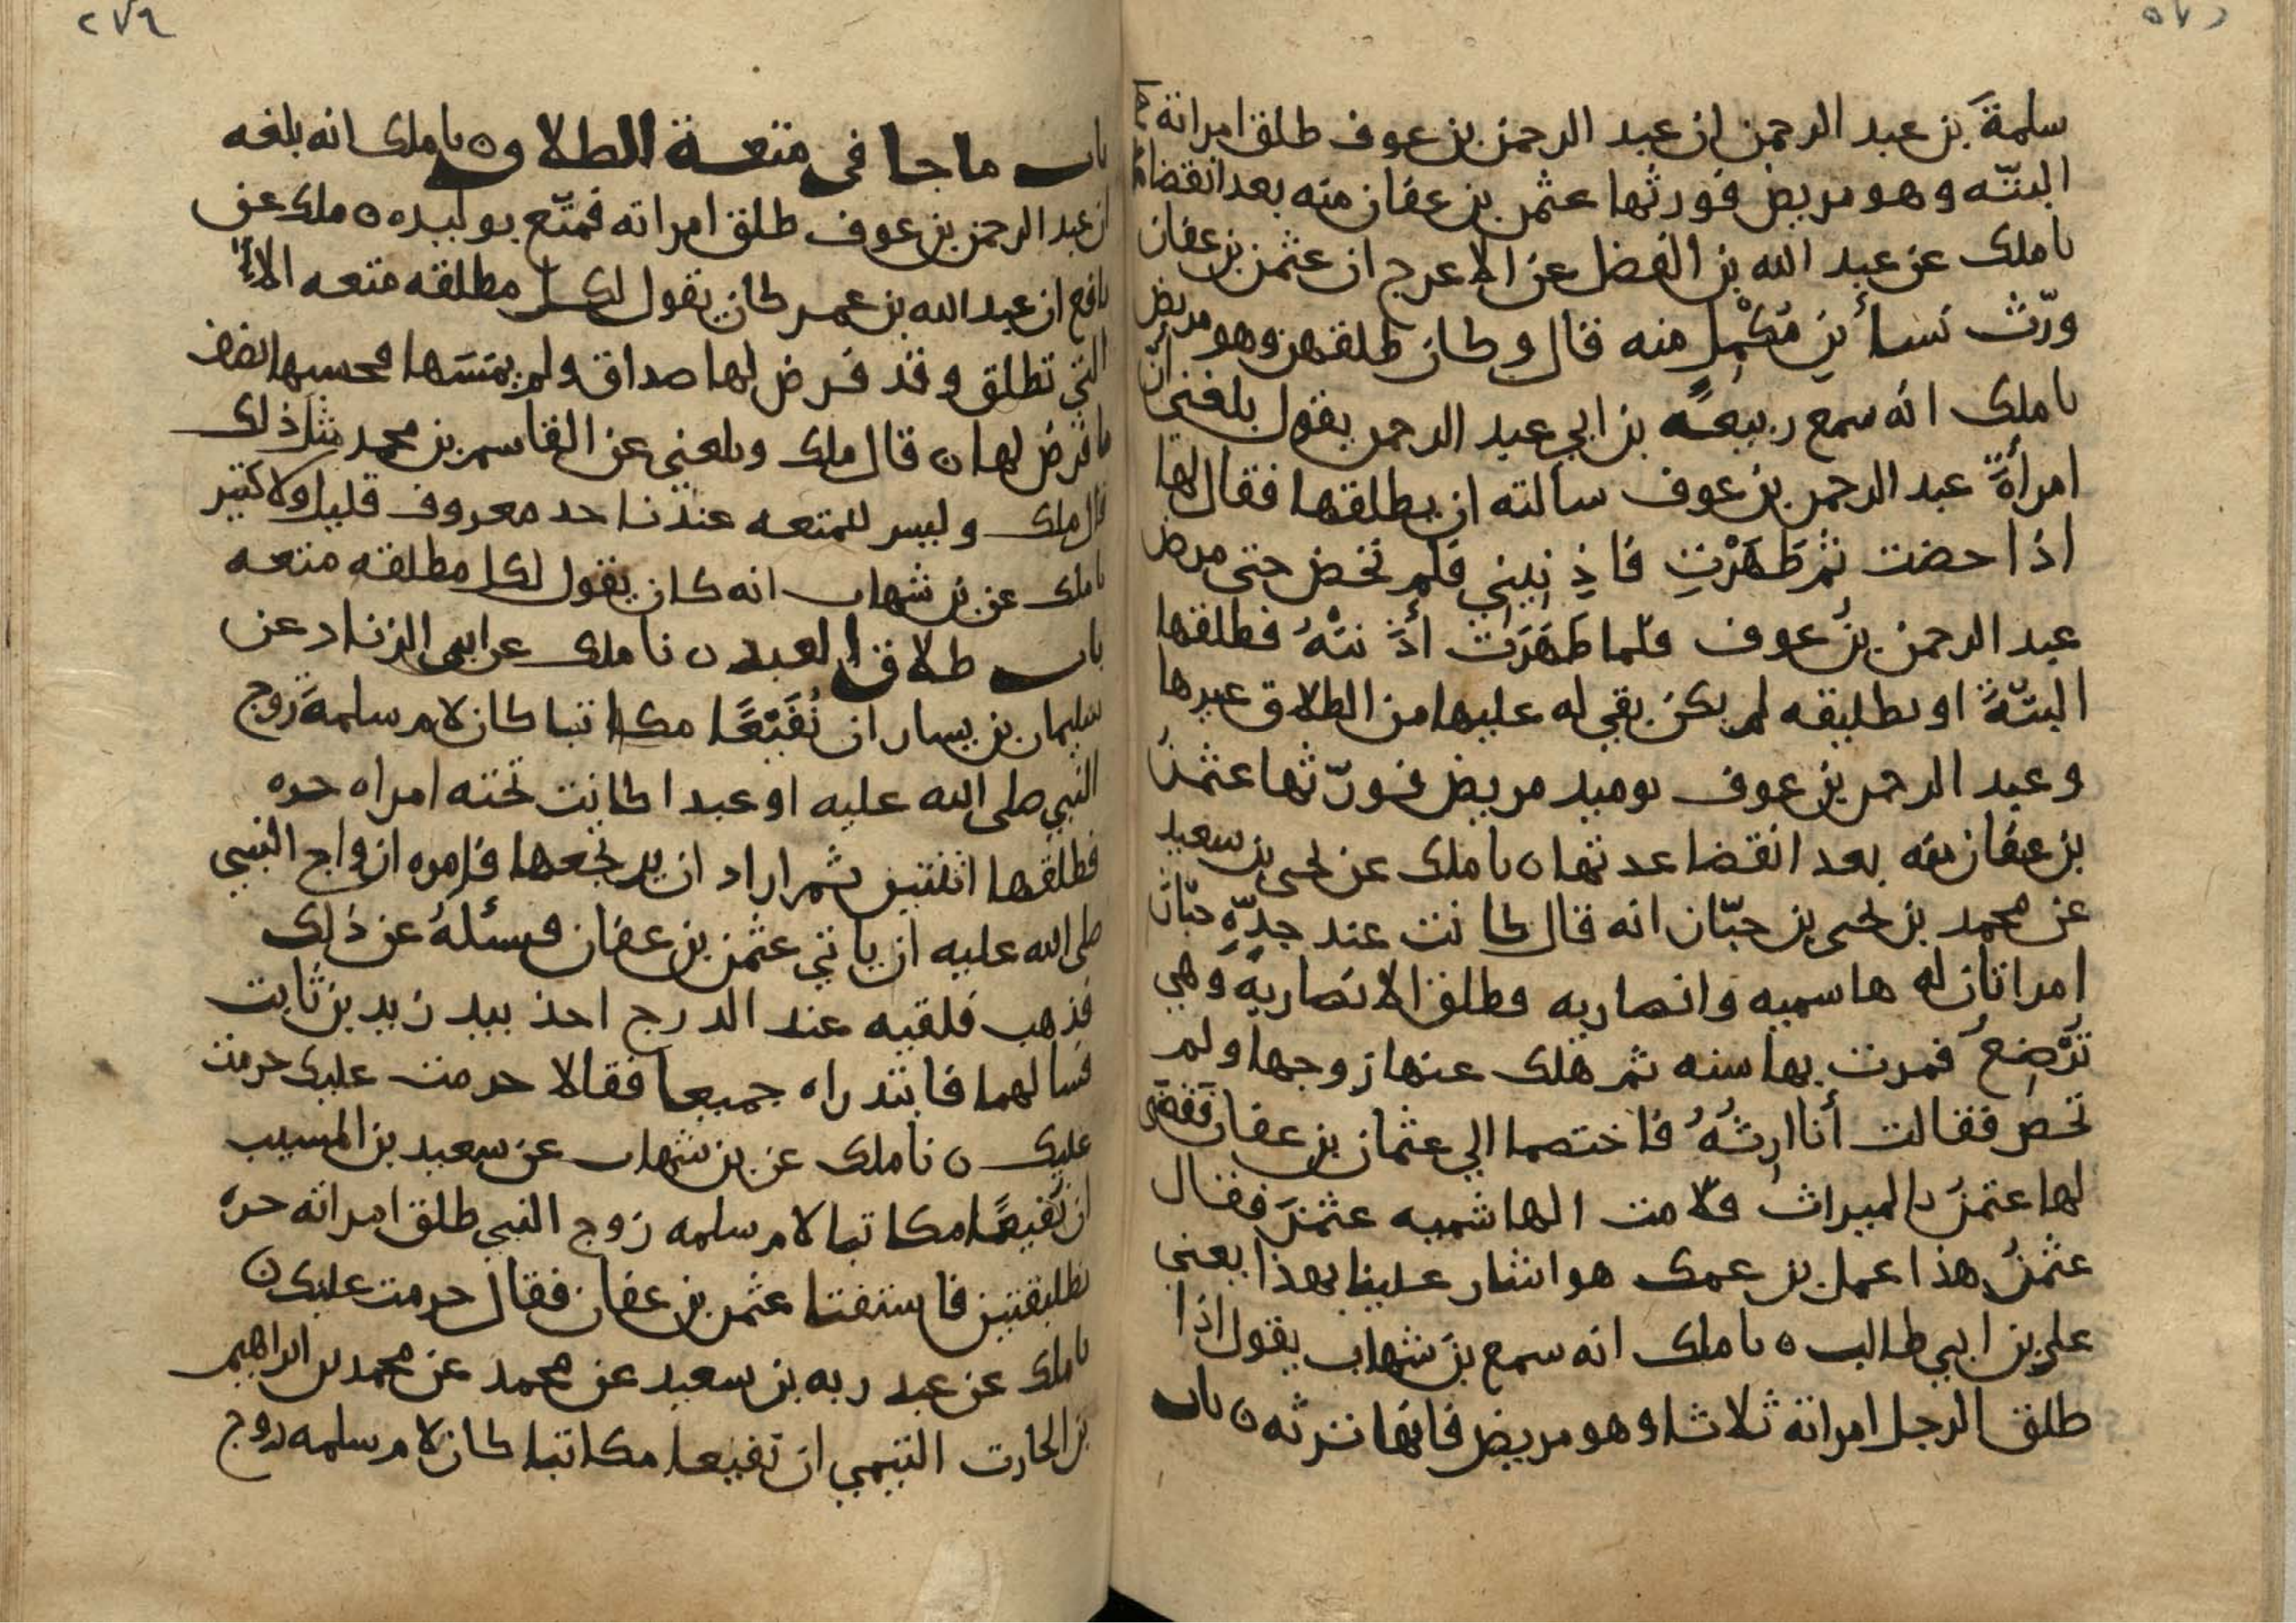 ٢٧٥
سلمةَ بن عبد الرحمن ان عبد الرحمن بن عوف طلق امراته
البتّه وهو مريض فورثها عثمن بن عفان منه بعد انقضا
نا ملك عن عبد الله بن الفضل عن الاعرج ان عثمن بن عفان
ورّث نسأ بن مُكْمِل منه قال وكان طلقهن وهو مريض
نا ملك انه سمع ربيعة بن ابي عبد الرحمن يقول بلغني انّ
امرأةَ عبد الرحمن بن عوف سالته ان يطلقها فقال لها
اذا حضت ثم طَهَرْتِ فاذِنِيني فلم تحض حتى مرض
عبد الرحمن بنُ عوف فلما طَهَرَت أذَنَتْهُ فطلقها
البتّةَ او تطليقه لم يكن بقي له عليها من الطلاق غيرها
وعبد الرحمن بن عوف يوميد مريض فورّثها عثمنُ
بن عفان منه بعد انقضا عدتها ن نا ملك عن يحيى بن سعيد
عن محمد بن يحيى بن حبّان انه قال كانت عند جدِّهِ حبّان
امراتان له هاسميه وانصاريه فطلق الانصاريه وهي
تُرْضِعُ فمرت بها سنه ثم هلك عنها زوجها ولم
تحض فقالت أنا ارِثُهُ فاختصما الي عثمان بن عفان فقضى
لها عثمنُ بالميراث فلامت الهاشميه عثمنَ فقال
عثمنُ هذا عمل بن عمك هو اشار علينا بهذا يعني
علي بن ابي طالب ه نا ملك انه سمع بن شهاب يقول اذا
طلق الرجل امراته ثلاثا وهو مريض فانها ترثه ن باب
٢٧٦
باب ما جا في متعة الطلاق ن نا ملك انه بلغه
ان عبد الرحمن بن عوف طلق امراته فمتّع بوليده ه ملك عن
نافع ان عبد الله بن عمر كان يقول لكل مطلقه متعه الا
التي تطلق وقد فرض لها صداق ولم يمسَها فحسبها نصف
ما فرض لها ن قال ملك وبلغني عن القاسم بن محمد مثل ذلك
قال ملك وليس للمتعه عندنا حد معروف قليل ولا كثير
نا ملك عن بن شهاب انه كان يقول لكل مطلقه متعه
باب طلاق العبد ن نا ملك عن ابي الزناد عن
سليمان بن يسار ان نُفَيْعًا مكاتبا كان لام سلمةَ زوج
النبي صلى الله عليه او عبدا كانت تحته امراه حره
فطلقها اثنتين ثم اراد ان يرتجعها فامره ازواج النبي
صلى الله عليه ان ياتي عثمن بن عفان فسئلهُ عن ذلك
فذهب فلقيه عند الدرج اخذ بيد زيد بن ثابت
فسالهما فابتدراه جميعا فقالا حرمت عليك حرمت
عليك ن نا ملك عن بن شهاب عن سعيد بن المسيب
ان نُفيعًا مكاتبا لام سلمه زوج النبي طلق امراته حره
تطليقتين فاستفتا عثمن بن عفان فقال حرمت عليك ن
نا ملك عن عبد ربه بن سعيد عن محمد عن محمد بن ابراهيم
بن الحارث التيمي ان نفيعا مكاتبا كان لام سلمه زوج